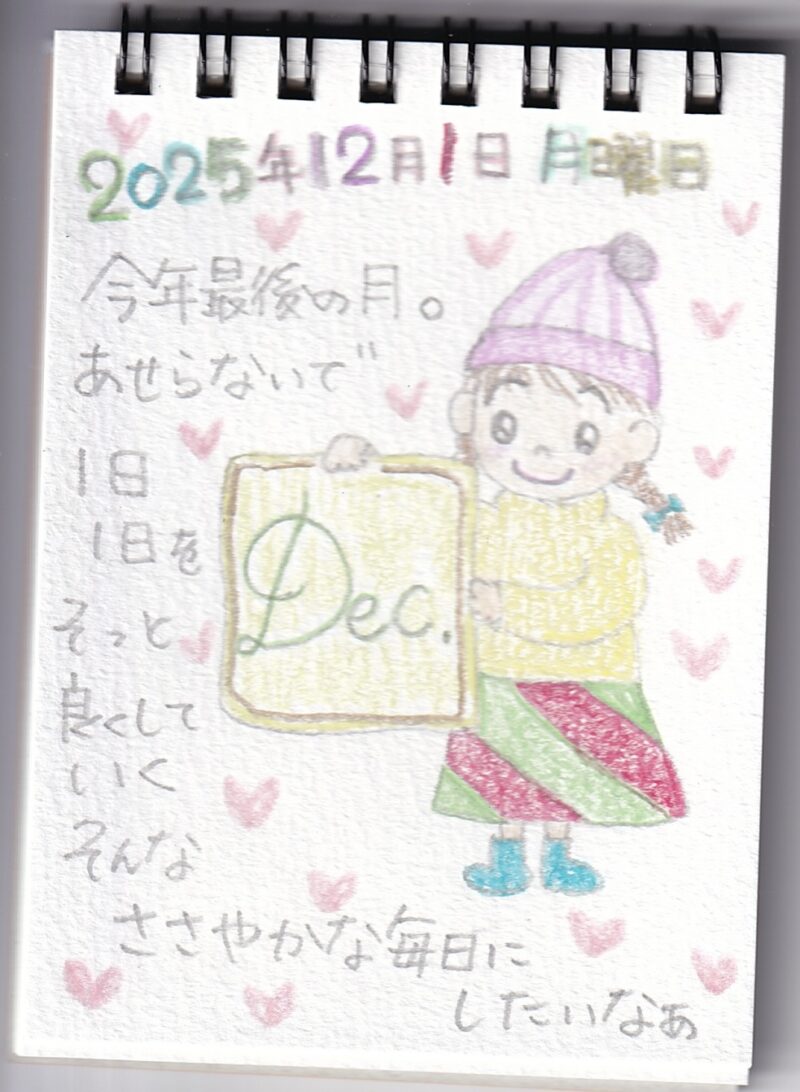 2025年12月1日 月曜日
今年最後の月。
あせらないで
1日
1日を
そっと
良くして
いく
そんな
ささやかな毎日に
したいなぁ
Dec.